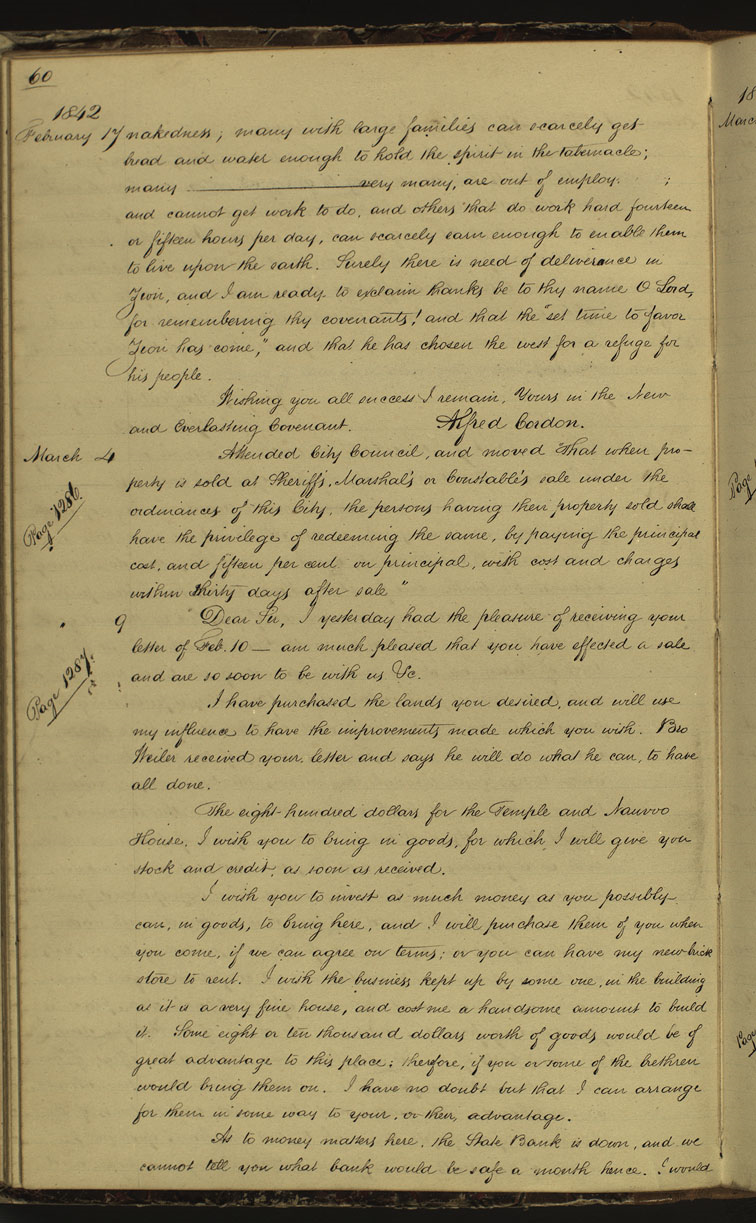 60
1842
February 17 nakedness; many with large families can scarcely get
bread and water enough to hold the spirit in the tabernacle;
many very many, are out of employ. ;
and cannot get work to do, and others that do work hard fourteen
or fifteen hours per day, can scarcely earn enough to enable them
to live upon the earth. Surely there is need of deliverance in
Zion, and I am ready to exclaim thanks be to thy name O Lord,
for remembering thy covenants! and that the "set time to favor
Zion has come," and that he has chosen the west for a refuge for
his people.
Wishing you all success I remain, Yours in the New
and Everlasting Covenant. Alfred Cordon.
March 4 Attended City Council, and moved "That when pro-
perty is sold at Sheriff's, Marshal's or Constable's sale under the
ordinances of this City, the persons having their property sold shall
Page 1286.
have the privilege of redeeming the same, by paying the principal
cost, and fifteen per cent on principal, with cost and charges
within thirty days after sale"
" 9 "Dear Sir, I yesterday had the pleasure of receiving your
letter of Feb. 10 — am much pleased that you have effected a sale
and are so soon to be with us &c.
Page 1287.
I have purchased the lands you desired, and will use
my influence to have the improvements made which you wish. Bro
Weiler received your letter and says he will do what he can, to have
all done.
The eight hundred dollars for the Temple and Nauvoo
House, I wish you to bring in goods, for which, I will give you
stock and credit, as soon as received.
I wish you to invest as much money as you possibly
can, in goods, to bring here, and I will purchase them of you when
you come, if we can agree on terms; or you can have my new brick
store to rent. I wish the business kept up by some one, in the building
as it is a very fine house, and cost me a handsome amount to build
it. Some eight or ten thousand dollars worth of goods would be of
great advantage to this place; therefore, if you or some of the brethren
would bring them on. I have no doubt but that I can arrange
for them in some way to your, or their, advantage.
As to money matters here, the State Bank is down, and we
cannot tell you what bank would be safe a month hence. I would
18
March
Page
Page